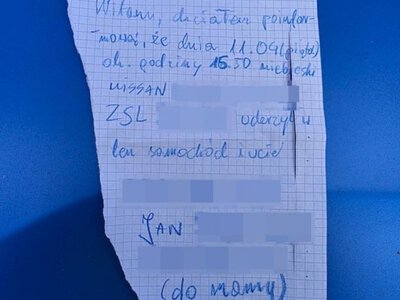 Witam, chciałem poinfor-
mować, że dnia 11.09 (piątek)
ok. godziny 15.50 niebieski
NISSAN
ZSL uderzył w
ten samochód i uciekł
JAN
(do mamy)